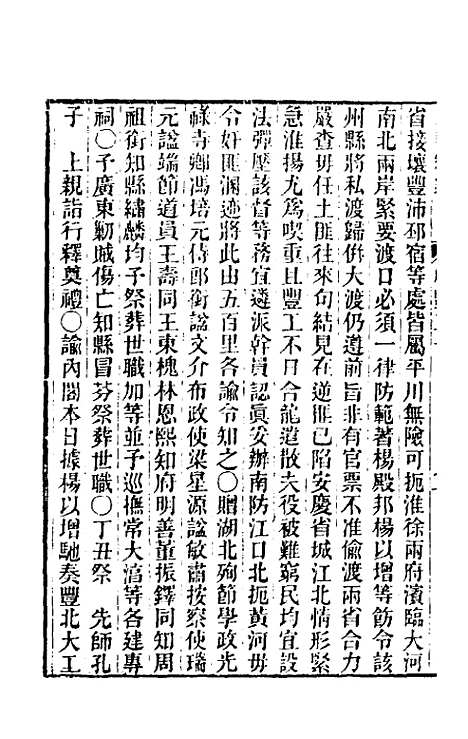 省接壤豐沛邳宿等處皆屬平川無險可扼淮徐兩府濱臨大河
南北兩岸緊要渡口必須一律防範著楊殿邦楊以增等飭令該
州縣將私渡歸併大渡仍遵前旨非有官票不准偷渡兩省合力
嚴查毋任土匪往來勾結見在逆匪已陷安慶省城江北情形緊
急淮揚尤爲喫重且豐工不日合龍遣散夫役被難窮民均宜設
法彈壓該督等務宜遴派幹員認眞妥辦南防江口北扼黃河毋
令奸匪溷迹將此由五百里各諭令知之〇贈湖北殉節學政光
祿寺卿馮培元侍郎銜諡文介布政使梁星源諡敏肅按察使瑞
元諡端節道員王壽同王東槐林恩熙知府明善董振鐸同知周
祖銜知縣繡麟均予祭葬世職加等並予巡撫常大淳等各建專
祠〇予廣東勦賊傷亡知縣冒芬祭葬世職〇丁丑祭　先師孔
子　上親詣行釋奠禮〇諭內閣本日據楊以增馳奏豐北大工